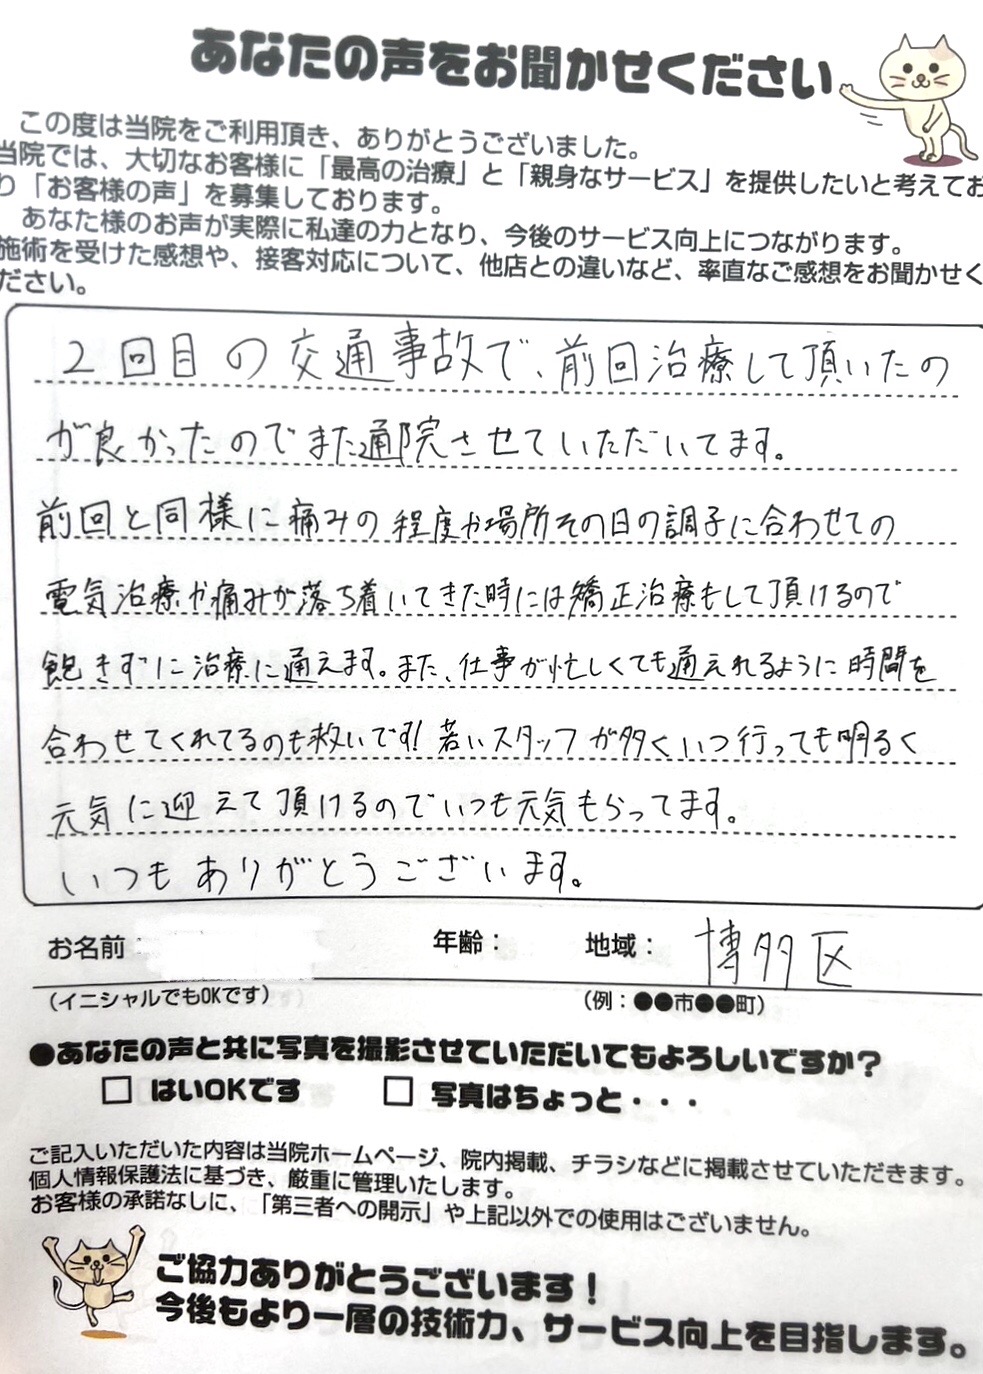 あなたの声をお聞かせください
この度は当院をご利用頂き、ありがとうございました。
当院では、大切なお客様に「最高の治療」と「親身なサービス」を提供したいと考えてお
り「お客様の声」を募集しております。
あなた様のお声が実際に私達の力となり、今後のサービス向上につながります。
施術を受けた感想や、接客対応について、他店との違いなど、率直なご感想をお聞かせく
ださい。
2回目の交通事故で、前回治療して頂いたの
が良かったのでまた通院させていただいてます。
前回と同様に痛みの程度や場所その日の調子に合わせての
電気治療や痛みが落ち着いてきた時には矯正治療もして頂けるので
飽きずに治療に通えます。また、仕事が忙しくても通えれるように時間を
合わせてくれてるのも救いです!若いスタッフが多くいつ行っても明るく
元気に迎えて頂けるのでいつも元気もらってます。
いつもありがとうございます。
お名前: 年齢: 地域: 博多区
(イニシャルでもOKです) (例:●●市●●町)
●あなたの声と共に写真を撮影させていただいてもよろしいですか?
□ はいOKです □ 写真はちょっと・・・
ご記入いただいた内容は当院ホームページ、院内掲載、チラシなどに掲載させていただきます。
個人情報保護法に基づき、厳重に管理いたします。
お客様の承諾なしに、「第三者への開示」や上記以外での使用はございません。
ご協力ありがとうございます!
今後もより一層の技術力、サービス向上を目指します。